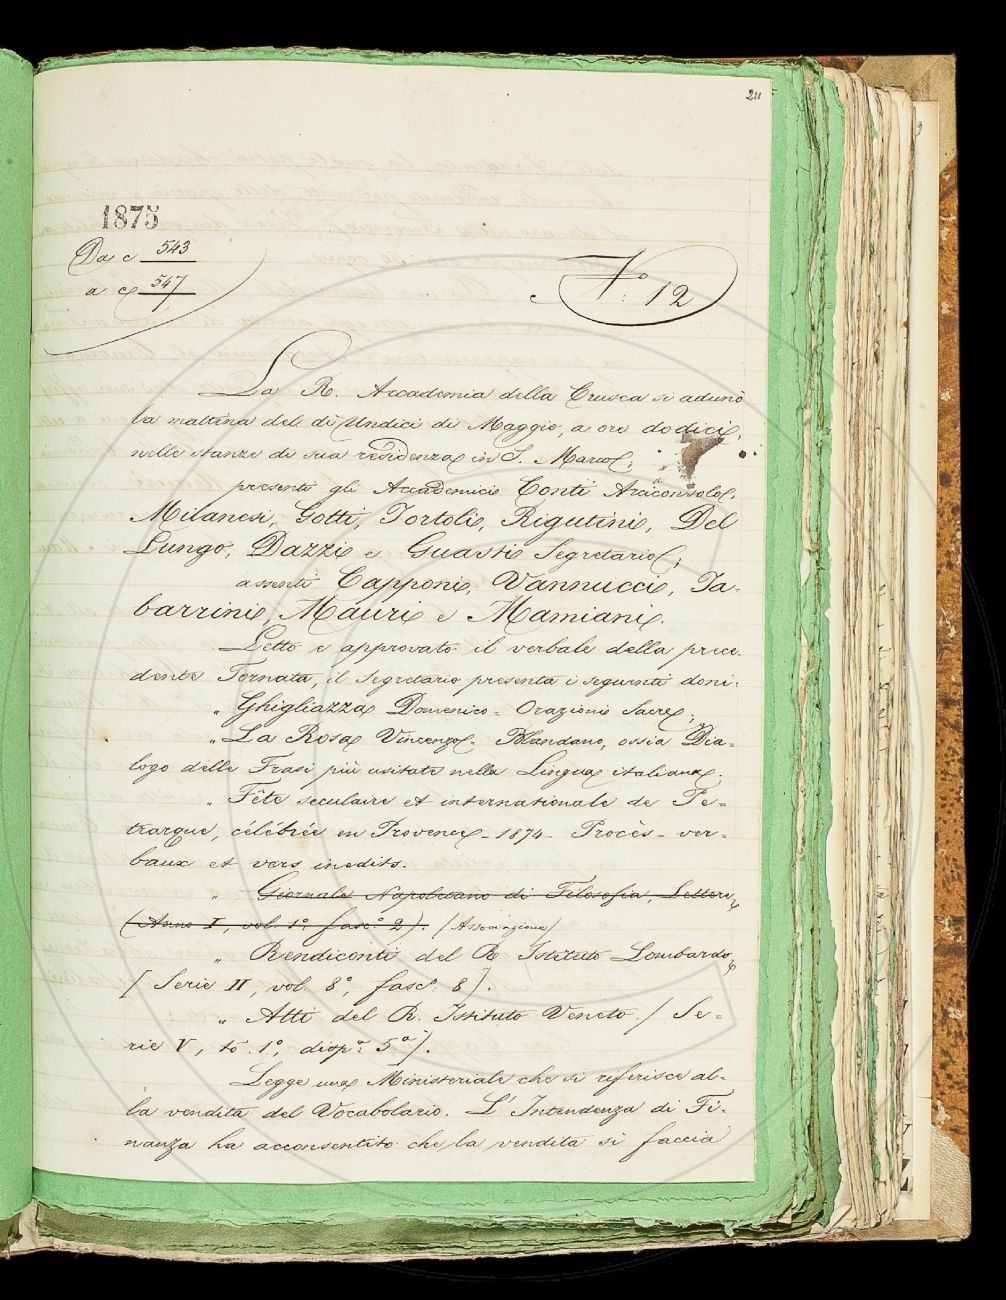 211
1875
Da c 543
a c 547
N.° 12
La R. Accademia della Crusca si adunò
la mattina del dì Undici di Maggio, a ore dodici,
nelle stanze di sua residenza in S. Marco;
presenti gli Accademici Conti Arciconsolo,
Milanesi, Gotti, Tortoli, Rigutini, Del
Lungo, Dazzi e Guasti Segretario;
assenti Capponi, Vannucci, Ta-
barrini, Mauri e Mamiani.
Letto e approvato il verbale della prece-
dente Tornata, il Segretario presenta i seguenti doni:
„ Ghigliazza Domenico - Orazioni Sacre;
„ La Rosa Vincenzo - Blandano, ossia Dia-
logo delle Frasi più usitate nella Lingua italiana.
„ Fête seculaire et internationale de Pe-
trarque, célébrée en Provence - 1874 - Procès-ver-
baux et vers inedits.
„ Giornale Napoletano di Filosofia, Lettere,
(Anno I, vol. 1° fasc.° 2). (Associazione)
„ Rendiconti del R. Istituto Lombardo,
[Serie II, vol. 8°, fasc.° 8].
„ Atti del R. Istituto Veneto. [Se-
rie V, to. 1°, disp.ª 5ª].
Legge una Ministeriale che si riferisce al-
la vendita del Vocabolario. L'Intendenza di Fi-
nanza ha acconsentito che la vendita si faccia